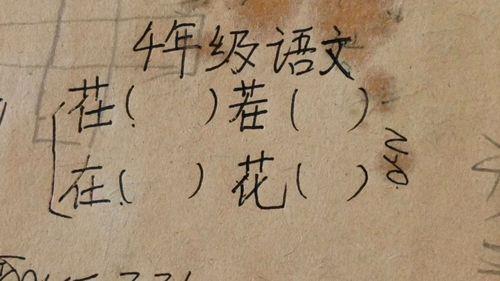 4年级语文
茌( )茬( )
在( )花( )